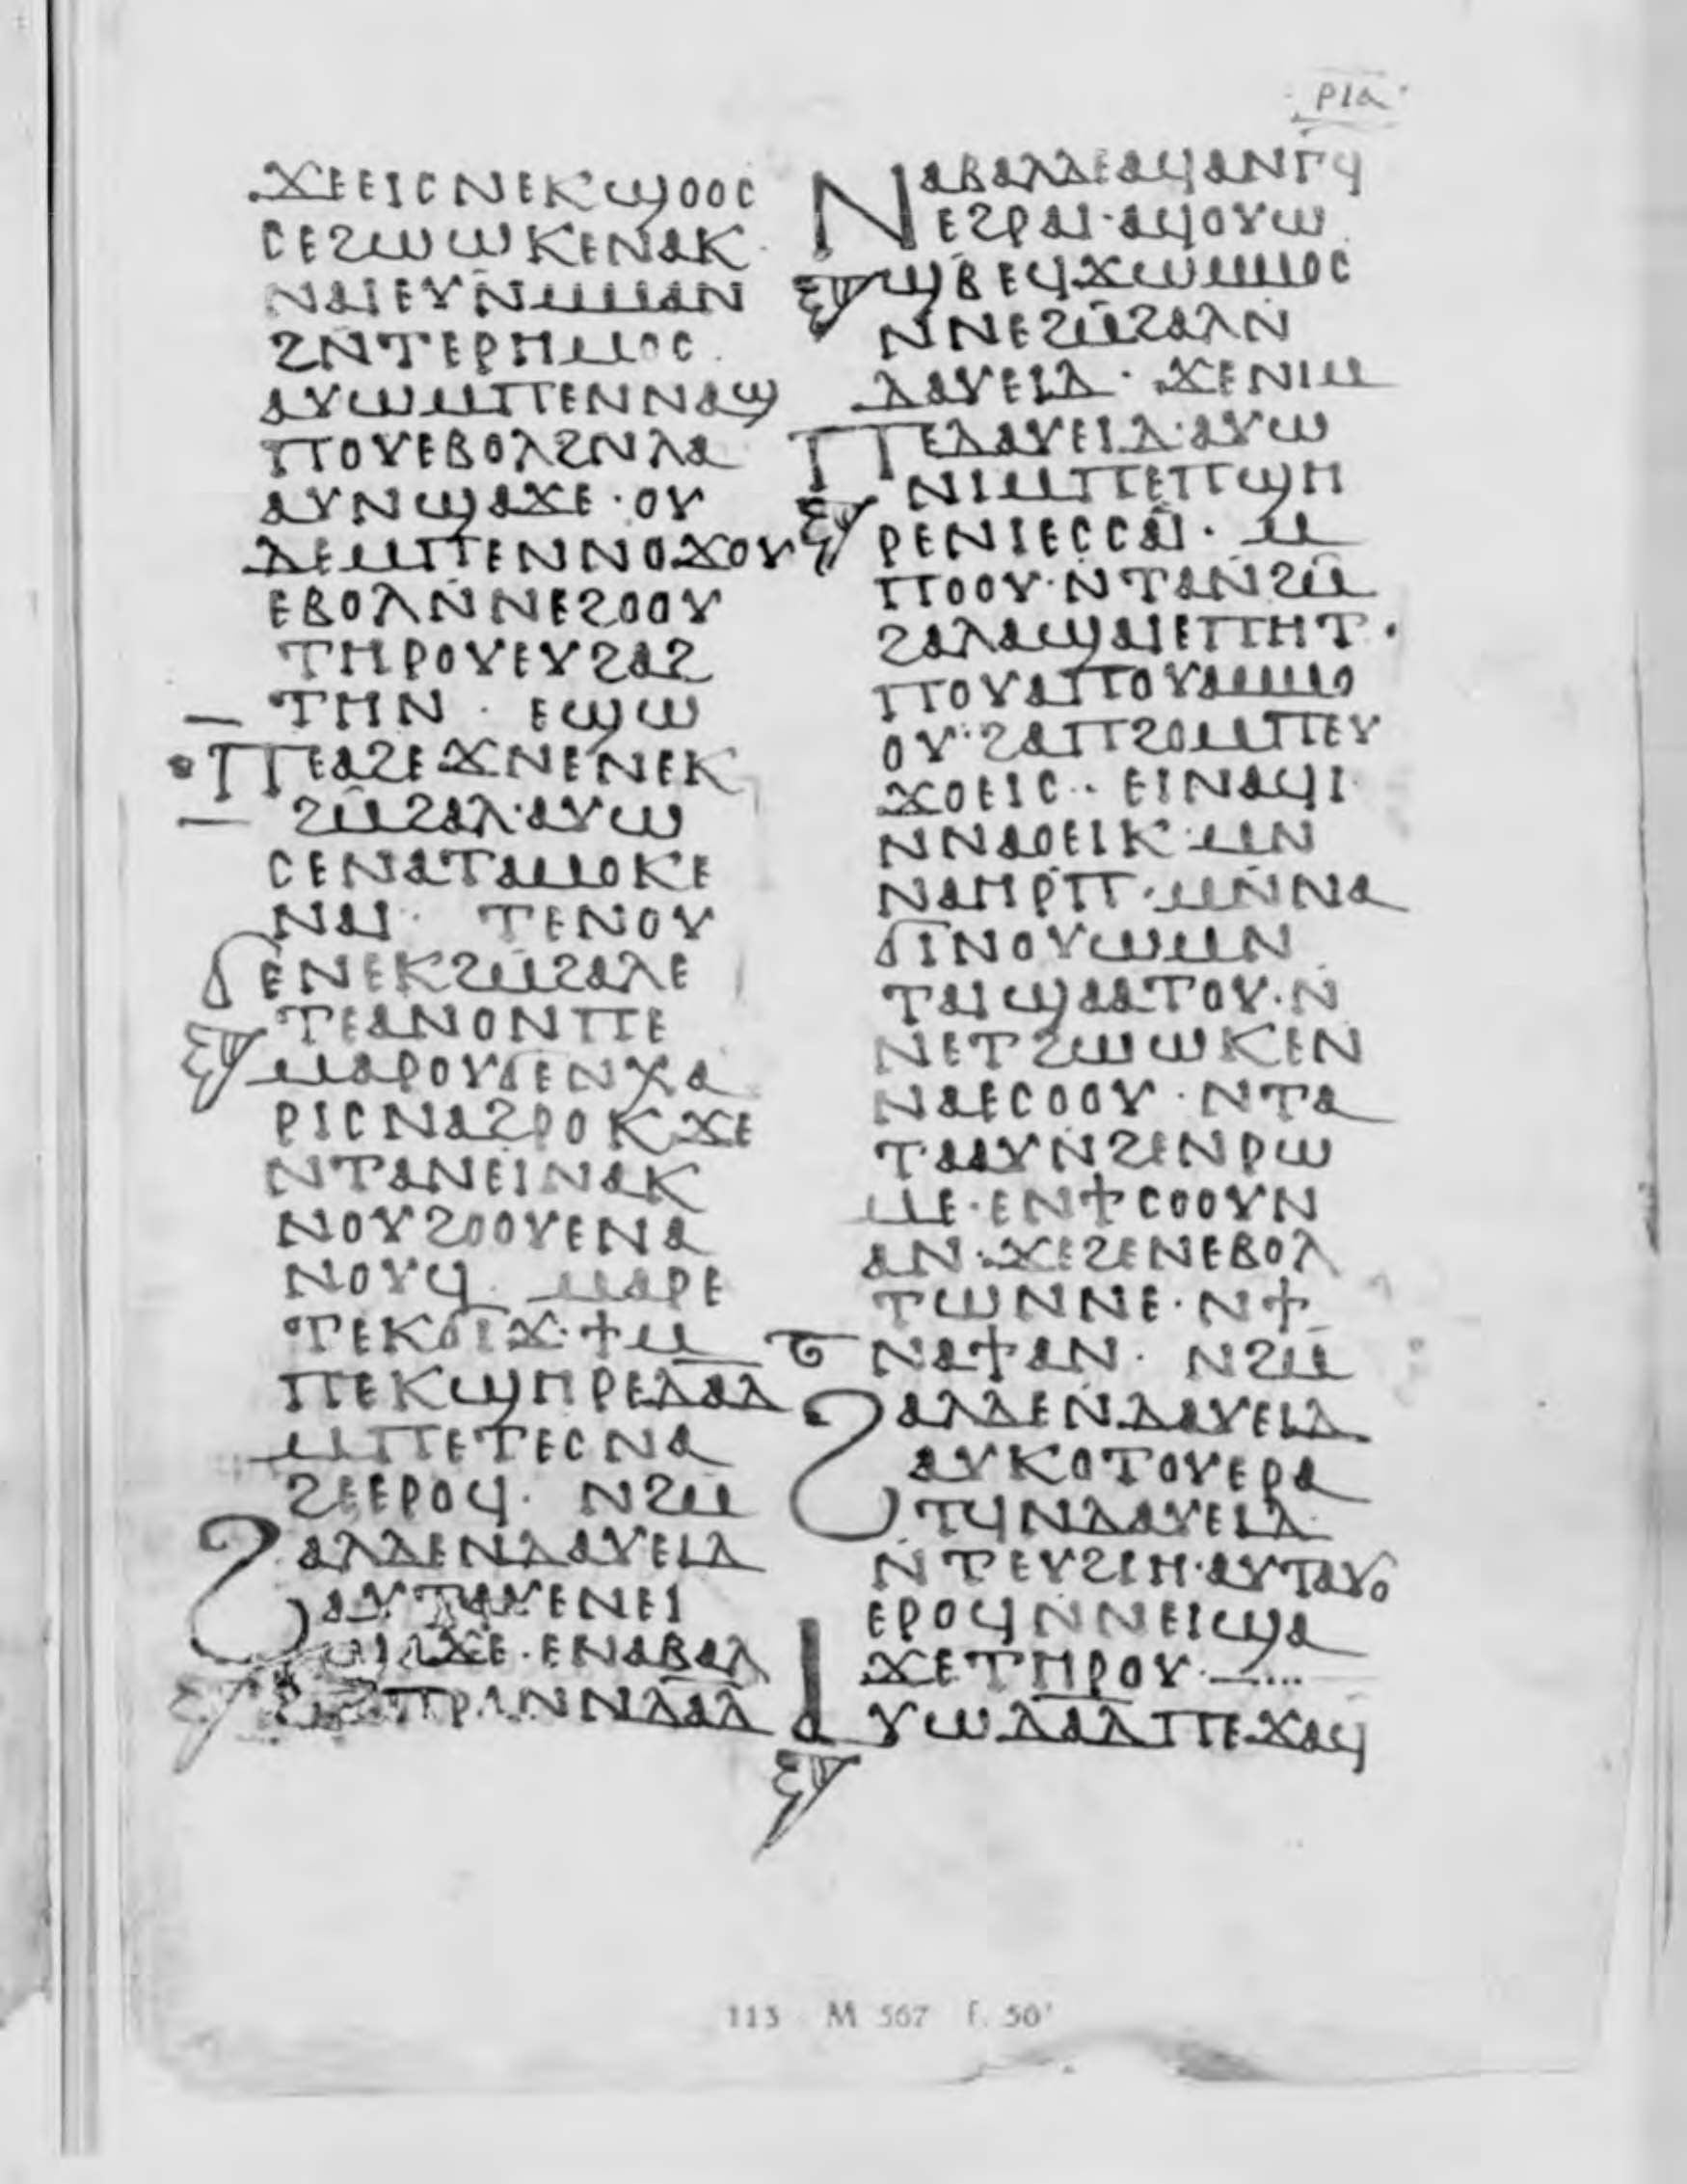 ⲣⲓⲁ
ϫⲉⲉⲓⲥⲛⲉⲕϣⲟⲟⲥ
ⲥⲉϩⲱⲱⲕⲉⲛⲁⲕ·
ⲛⲁⲓⲉⲩⲛⲙⲙⲁⲛ
ϩⲛⲧⲉⲣⲏⲙⲟⲥ·
ⲁⲩⲱⲙⲡⲉⲛⲛⲁϣ
ⲡⲟⲩⲉⲃⲟⲗϩⲛⲗⲁ
ⲁⲩⲛϣⲁϫⲉ·ⲟⲩ
ⲇⲉⲙⲡⲉⲛⲛⲟϫⲟⲩ
ⲉⲃⲟⲗⲛⲛⲉϩⲟⲟⲩ
ⲧⲏⲣⲟⲩⲉⲩϩⲁϩ
ⲧⲏⲛ· ⲉϣⲱ
ⲡⲉⲁϩⲉϫⲛⲉⲛⲉⲕ
ϩⲙ̄ϩⲁⲗ·ⲁⲩⲱ
ⲥⲉⲛⲁⲧⲁⲙⲟⲕⲉ
ⲛⲁⲓ· ⲧⲉⲛⲟⲩ
ϭⲉⲛⲉⲕϩⲙ̄ϩⲁⲗⲉ
ⲧⲉⲁⲛⲟⲛⲡⲉ
ⲙⲁⲣⲟⲩϭⲉⲛⲭⲁ
ⲣⲓⲥⲛⲁϩⲣⲟⲕϫⲉ
ⲛⲧⲁⲛⲉⲓⲛⲁⲕ
ⲛⲟⲩϩⲟⲟⲩⲉⲛⲁ
ⲛⲟⲩϥ· ⲙⲁⲣⲉ
ⲧⲉⲕϭⲓϫ·ϯⲙ
ⲡⲉⲕϣⲏⲣⲉⲇⲁ̅ⲇ̅
ⲙⲡⲉⲧⲉⲥⲛⲁ
ϩⲉⲉⲣⲟϥ· ⲛϩⲙ̄
ϩⲁⲗⲇⲉⲛⲇⲁⲩⲉⲓⲇ
ⲁⲩⲧⲁⲩⲉⲛⲉⲓ
ϣⲁϫⲉ·ⲉⲛⲁⲃⲁⲗ
ϩⲙⲡⲣⲁⲛⲛⲇⲁ̅ⲇ̅
ⲛⲁⲃⲁⲗⲇⲉⲁϥⲁⲛⲅϥ
ⲉϩⲣⲁⲓ·ⲁϥⲟⲩⲱ
ϣⲃⲉϥϫⲱⲙⲙⲟⲥ
ⲛⲛⲉϩⲙ̄ϩⲁⲗⲛ
ⲇⲁⲩⲉⲓⲇ· ϫⲉⲛⲓⲙ
ⲡⲉⲇⲁⲩⲉⲓⲇ·ⲁⲩⲱ
ⲛⲓⲙⲡⲉⲡϣⲏ
ⲣⲉⲛⲓⲉⲥⲥⲁⲓ· ⲙ
ⲡⲟⲟⲩ·ⲛⲧⲁⲛϩⲙ̄
ϩⲁⲗⲁϣⲁⲓⲉⲡⲏⲧ·
ⲡⲟⲩⲁⲡⲟⲩⲁⲙⲙⲟ
ⲟⲩ·ϩⲁⲡϩⲟⲙⲡⲉⲩ
ϫⲟⲉⲓⲥ·· ⲉⲓⲛⲁϥⲓ
ⲛⲛⲁⲟⲉⲓⲕ·ⲙⲛ
ⲛⲁⲏⲣⲡ·ⲙⲛⲛⲁ
ϭⲓⲛⲟⲩⲱⲙⲛ
ⲧⲁⲓϣⲁⲁⲧⲟⲩ·ⲛ
ⲛⲉⲧϩⲱⲱⲕⲉⲛ
ⲛⲁⲉⲥⲟⲟⲩ·ⲛⲧⲁ
ⲧⲁⲁⲩⲛϩⲉⲛⲣⲱ
ⲙⲉ·ⲉⲛϯⲥⲟⲟⲩⲛ
ⲁⲛ·ϫⲉϩⲉⲛⲉⲃⲟⲗ
ⲧⲱⲛⲛⲉ·ⲛϯ
ⲛⲁϯⲁⲛ· ⲛϩⲙ̄
ϩⲁⲗⲇⲉⲛⲇⲁⲩⲉⲓⲇ
ⲁⲩⲕⲟⲧⲟⲩⲉⲣⲁ
ⲧϥⲛⲇⲁⲩⲉⲓⲇ·
ⲛⲧⲉⲩϩⲓⲏ·ⲁⲩⲧⲁⲩⲟ
ⲉⲣⲟϥⲛⲛⲉⲓϣⲁ
ϫⲉⲧⲏⲣⲟⲩ·—····
ⲁⲩⲱⲇⲁ̅ⲇ̅ⲡⲉϫⲁϥ
113 M 567 f. 50ʳ